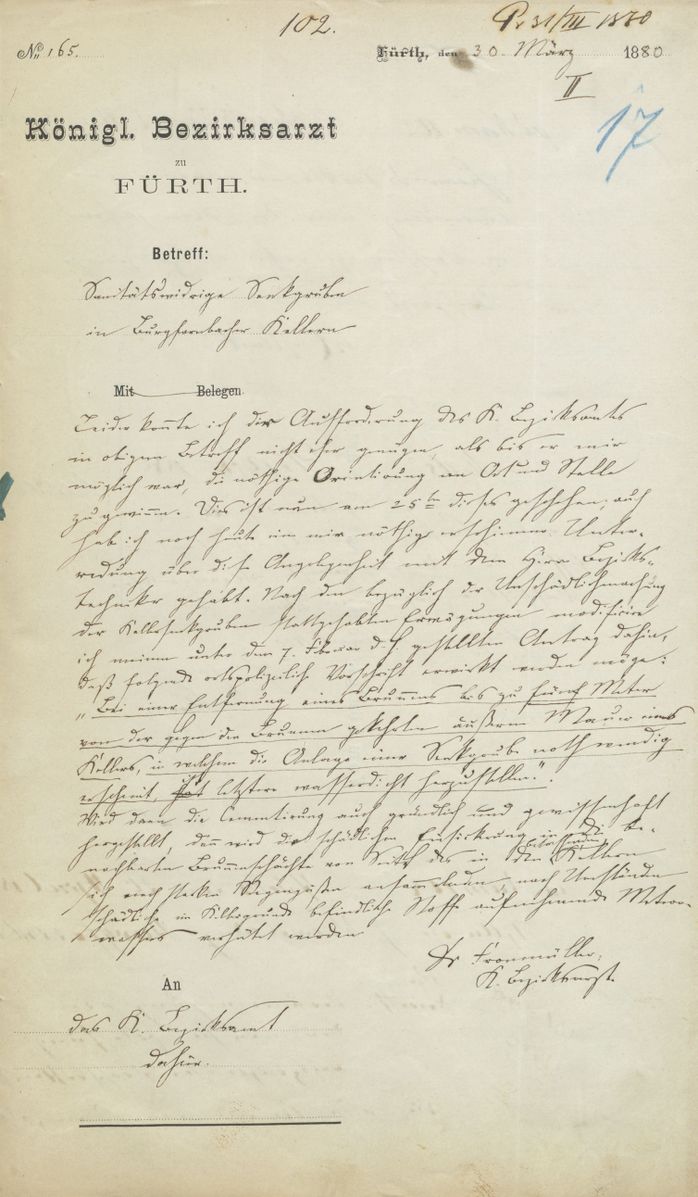 102.
Pr. 31/III 1880
No. 165.
Fürth, den 30. März 1880
II
17
Königl. Bezirksarzt
zu
FÜRTH.
Betreff:
Sanitätswidrige Senkgruben
in Burgfarnbacher Kellern
Mit Belegen.
Leider konnte ich der Aufforderung des K. Bezirksamtes
in obigem Betreff nicht eher genügen, als bis es mir
möglich war, die nöthige Orientirung an Ort und Stelle
zu gewinnen. Dies ist nun am 25ten dieses geschehen; auch
habe ich noch heute eine mir nöthig erscheinende Unter-
redung über diese Angelegenheit mit dem Herrn Bezirks-
techniker gehabt. Nach den bezüglich der Unschädlichmachung
der Kellersenkgruben stattgehabten Erwägungen modificire
ich meinen unter dem 7. Februar d. J. gestellten Antrag dahin,
daß folgende ortspolizeiliche Vorschrift erwirkt werden möge:
"Bei einer Entfernung eines Brunnens bis zu fünf Meter
von der gegen den Brunnen gekehrten äußeren Mauer eines
Kellers, in welchem die Anlage einer Senkgrube nothwendig
erscheint, ist letztere wasserdicht herzustellen."
Wird dann die Cementirung auch gründlich und gewissenhaft
hergestellt, dann wird die schädliche Einsickerung in die be-
nachbarten Brunnenschächte von Seite des in den betreffenden Kellern
sich nach starken Regengüßen ansammelnden, nach Umständen
schädliche im Kellergrunde befindliche Stoffe aufnehmende Meteor-
wassers verhütet werden
Dr Fronmüller,
K. Bezirksarzt.
An
das K. Bezirksamt
dahier.